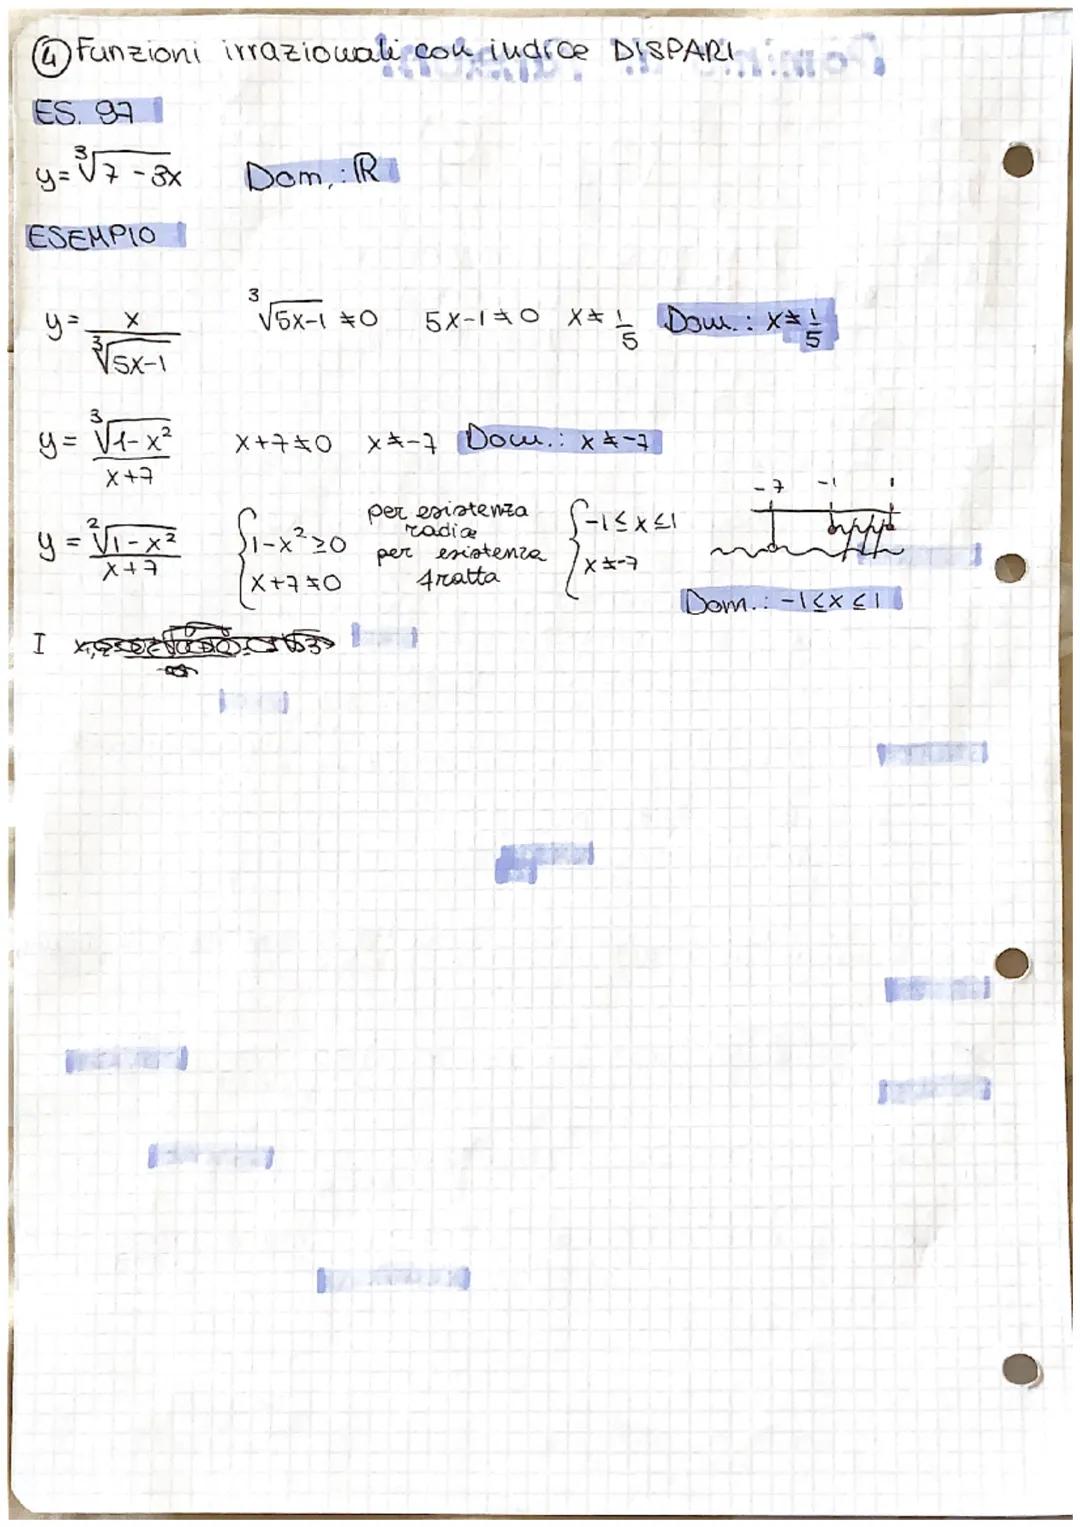 ④ Funzioni irrazionali con indice DISPARI
ES. 97
y = ³√7-3x Dom.: ℝ
ESEMPIO
y = x / ³√5x-1 ³√5x-1 ≠0 5x-1≠0 x≠ 1/5 Dom.: x≠ 1/5
y = ³√1-x² / x+7 x+7≠0 x≠-7 Dom.: x≠-7
y = ²√1-x² / x+7 { 1-x²≥0 x+7≠0 per esistenza radice per esistenza fratta { -1≤x≤1 x≠-7 -7 -1 1
Dom.: -1≤x≤1
I